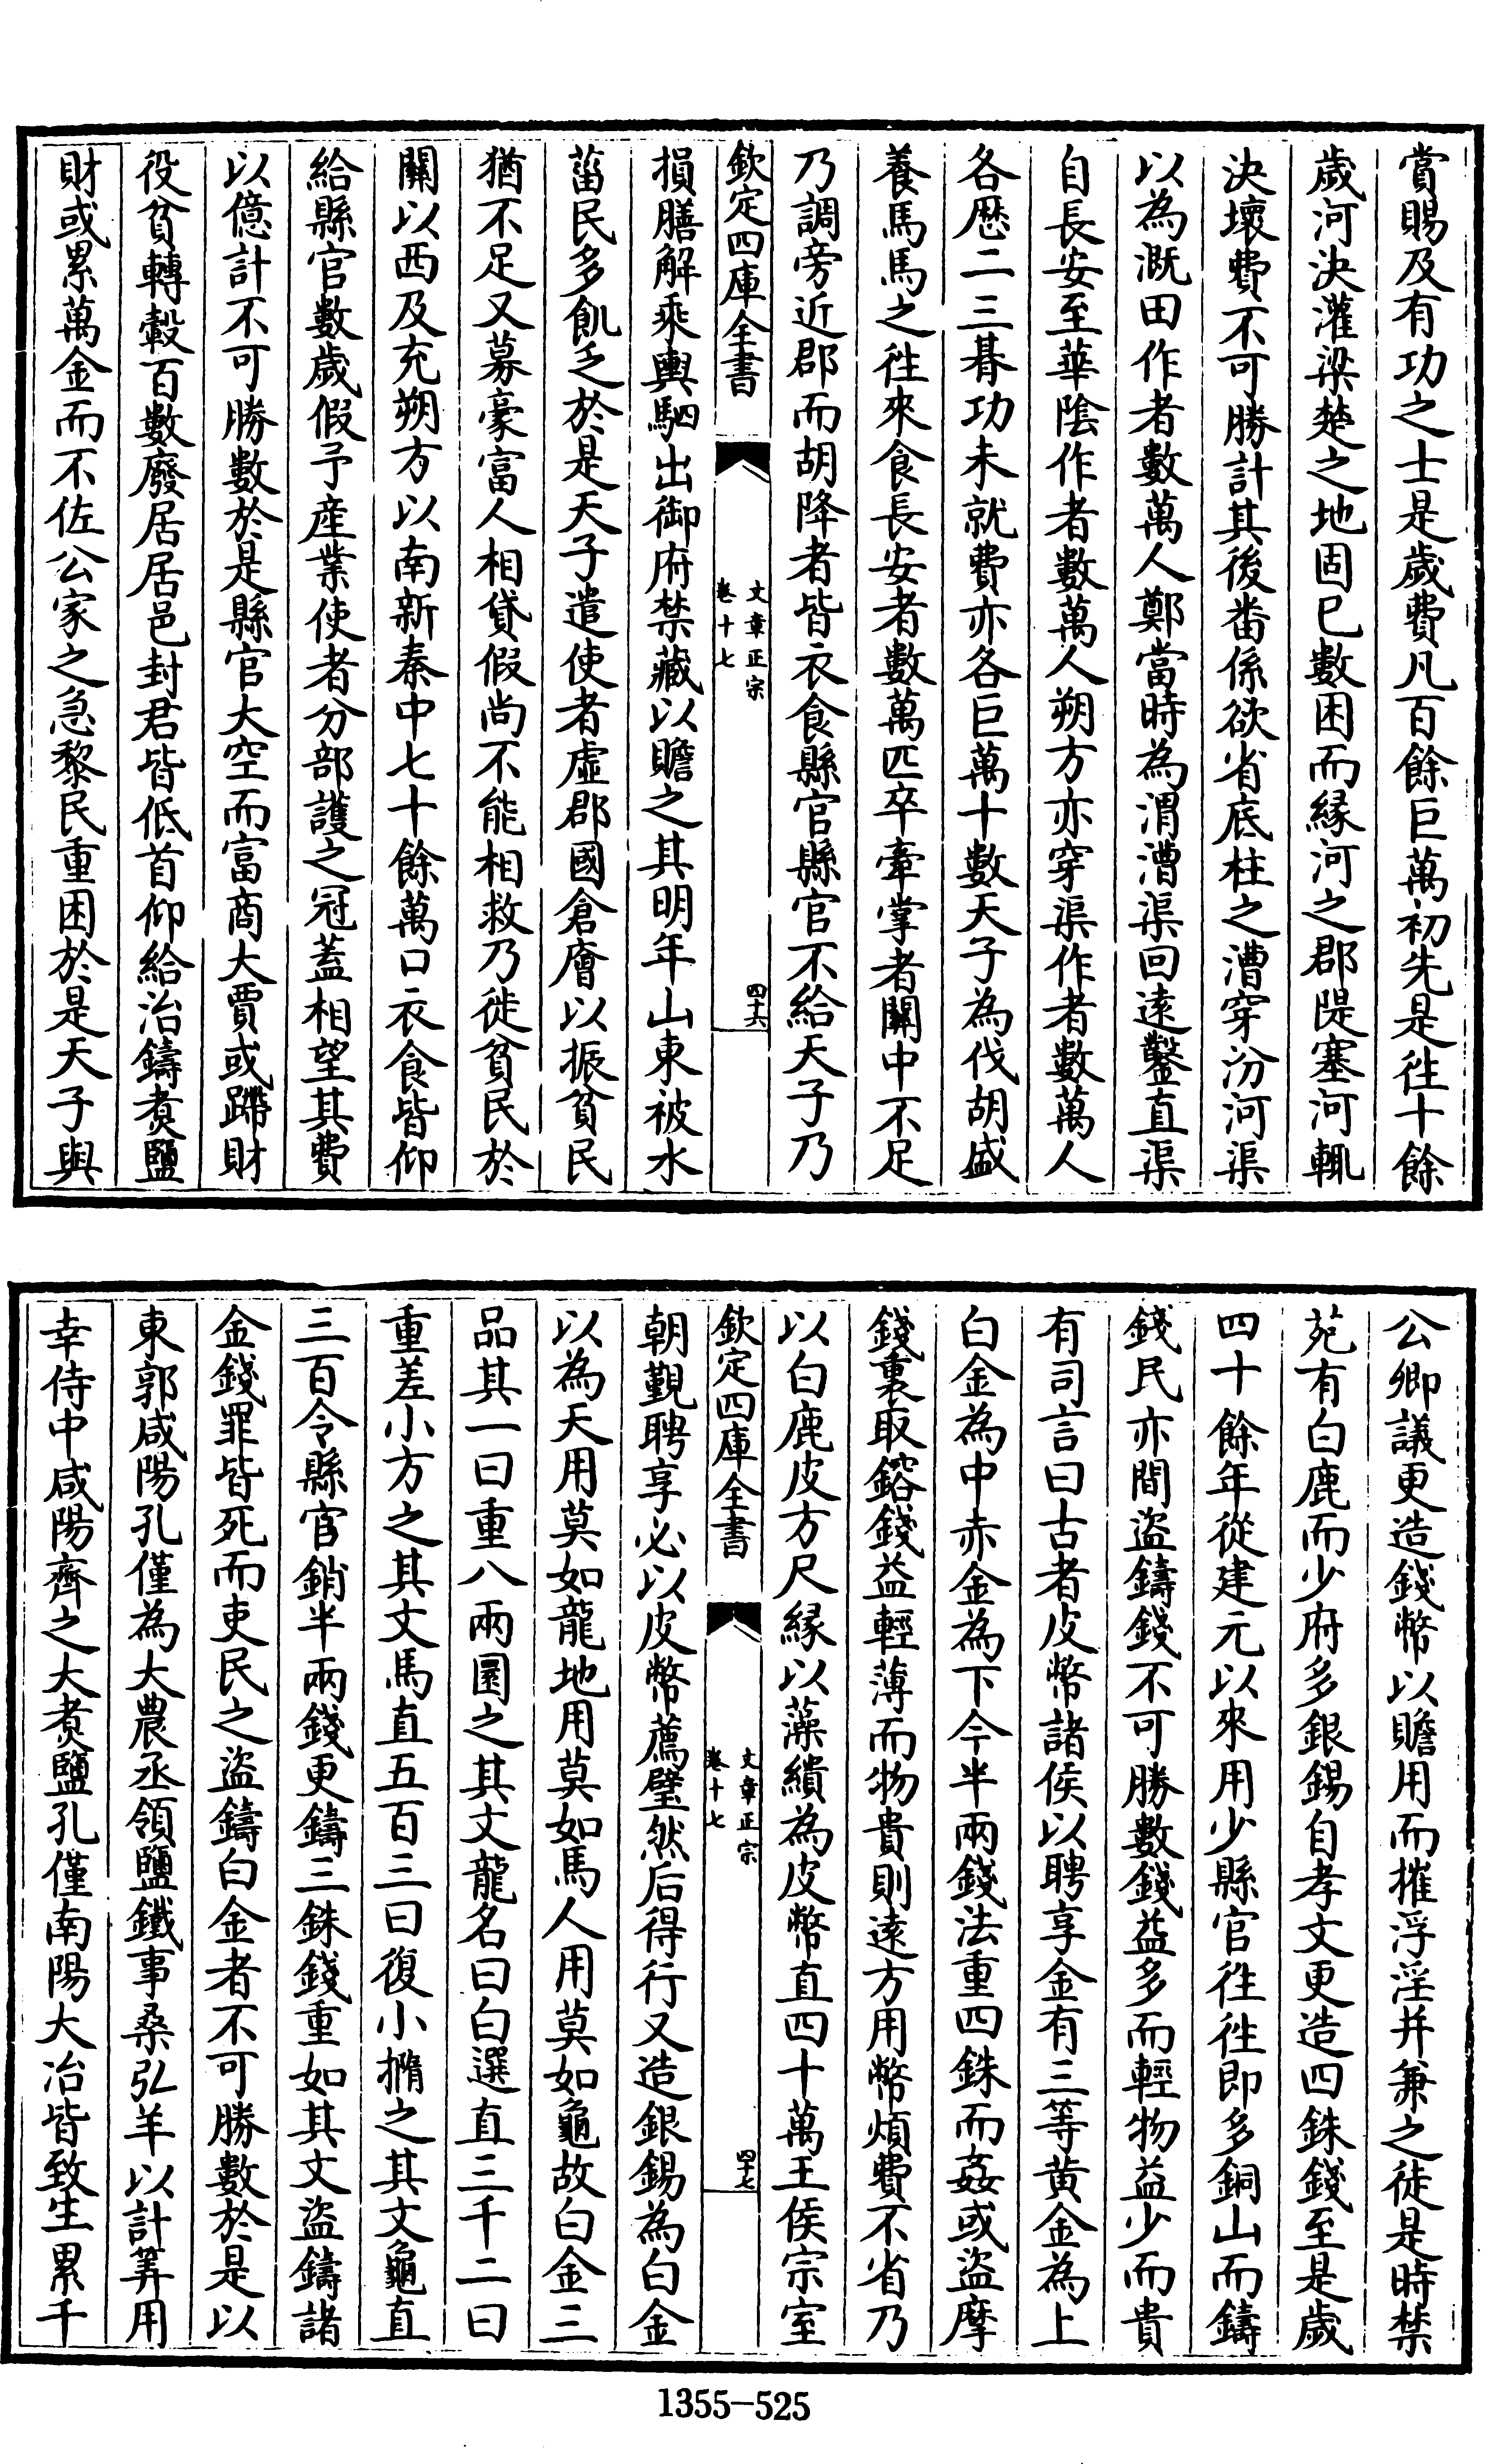 賞賜及有功之士是歲費凡百餘巨萬初先是徃十餘
歲河決灌梁楚之地固已數困而縁河之郡隄塞河輒
決壞費不可勝計其後番係欲省底柱之漕穿汾河渠
以為溉田作者數萬人鄭當時為渭漕渠回逺鑿直渠
自長安至華隂作者數萬人朔方亦穿渠作者數萬人
各歴二三朞功未就費亦各巨萬十數天子為伐胡盛
養馬馬之徃來食長安者數萬匹卒牽掌者闗中不足
乃調旁近郡而胡降者皆衣食縣官縣官不給天子乃
欽定四庫全書
文章正宗
卷十七
四十六
損膳解乘輿駟出御府禁藏以贍之其明年山東被水
菑民多飢乏於是天子遣使者虛郡國倉廥以振貧民
猶不足又募豪富人相貸假尚不能相救乃徙貧民於
闗以西及充朔方以南新秦中七十餘萬口衣食皆仰
給縣官數歲假予産業使者分部護之冠蓋相望其費
以億計不可勝數於是縣官大空而富商大賈或蹛財
役貧轉轂百數廢居居邑封君皆低首仰給冶鑄煑鹽
財或累萬金而不佐公家之急黎民重困於是天子與
公卿議更造錢幣以贍用而摧浮淫并兼之徒是時禁
苑有白鹿而少府多銀錫自孝文更造四銖錢至是歲
四十餘年從建元以來用少縣官徃徃即多銅山而鑄
錢民亦間盜鑄錢不可勝數錢益多而輕物益少而貴
有司言曰古者皮幣諸侯以聘享金有三等黄金為上
白金為中赤金為下今半兩錢法重四銖而姦或盜摩
錢裏取鎔錢益輕薄而物貴則逺方用幣煩費不省乃
以白鹿皮方尺縁以藻繢為皮幣直四十萬王侯宗室
欽定四庫全書
文章正宗
卷十七
四十七
朝覲聘享必以皮幣薦璧然后得行又造銀錫為白金
以為天用莫如龍地用莫如馬人用莫如龜故白金三
品其一曰重八兩圜之其文龍名曰白選直三千二曰
重差小方之其文馬直五百三曰復小撱之其文龜直
三百令縣官銷半兩錢更鑄三銖錢重如其文盜鑄諸
金錢罪皆死而吏民之盜鑄白金者不可勝數於是以
東郭咸陽孔僅為大農丞領鹽鐵事桑弘羊以計筭用
幸侍中咸陽齊之大煑鹽孔僅南陽大冶皆致生累千
1355-525